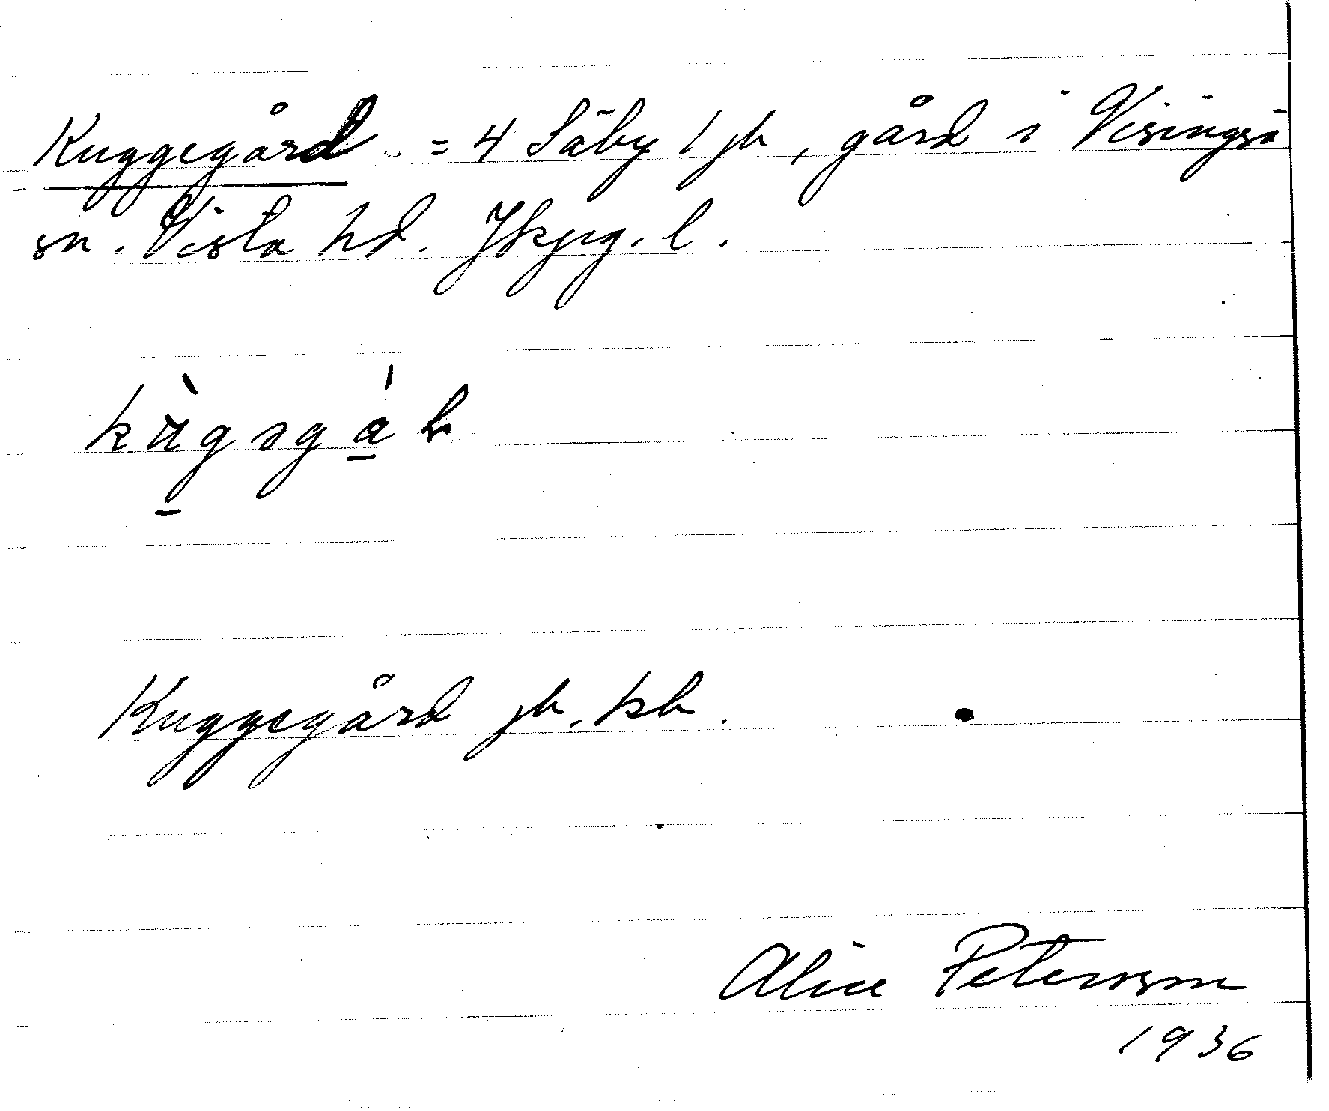 Kuggegård = 4 Säby 1 jb, gård i Visingsö
sn. Vista hd. Jkpg. l.
Kuggegård jb. kb.
Alice Petersson
1936